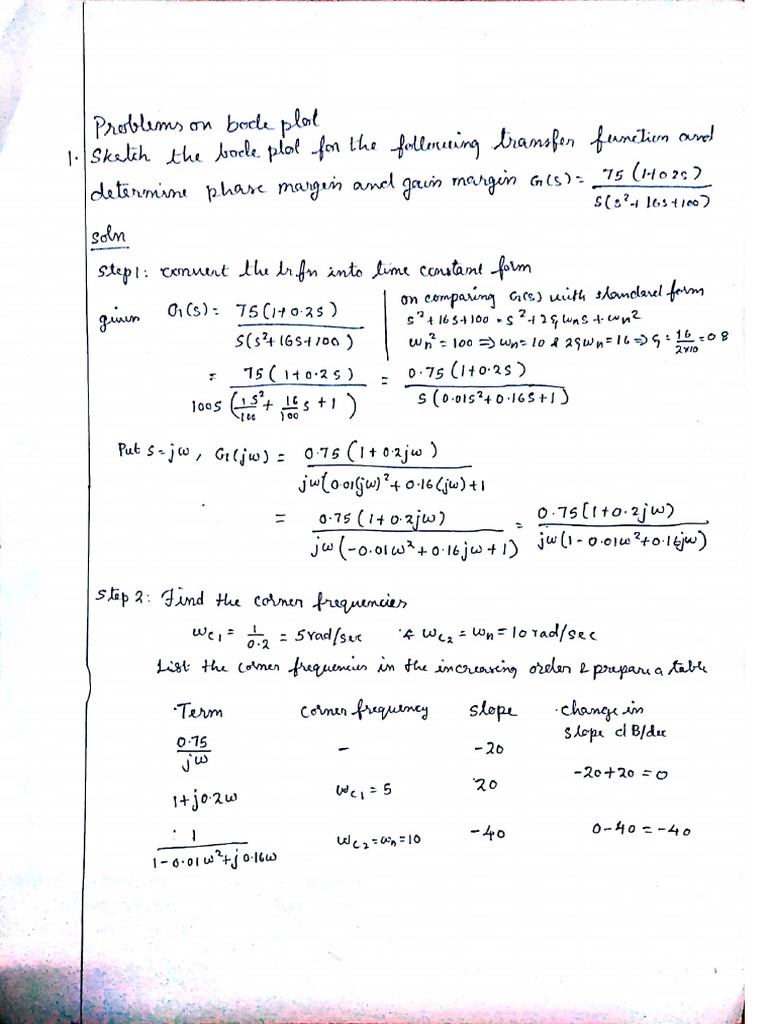 Problems on bode plot
1. Sketch the bode plot for the following transfer function and
determine phase margin and gain margin G(s) = 75(1+0.2s) / s(s²+16s+100)
Soln
Step1: convert the tr.fn into time constant form
given G(s) = 75(1+0.2s) / s(s²+16s+100)
on comparing G(s) with standard form
s²+16s+100 = s²+2ζωns+ωn²
ωn² = 100 ⇒ ωn = 10 & 2ζωn = 16 ⇒ ζ = 16/2×10 = 0.8
= 75(1+0.2s) / 100s(1s²/100 + 16/100 s + 1) = 0.75(1+0.2s) / s(0.01s²+0.16s+1)
Put s=jω, G(jω) = 0.75(1+0.2jω) / jω(0.01(jω)²+0.16(jω)+1
= 0.75(1+0.2jω) / jω(-0.01ω²+0.16jω+1) = 0.75(1+0.2jω) / jω(1-0.01ω²+0.16jω)
Step 2: Find the corner frequencies
ωc1 = 1/0.2 = 5rad/sec & ωc2 = ωn = 10rad/sec
List the corner frequencies in the increasing order & prepare a table
Term corner frequency slope change in slope dB/dec
0.75/jω - -20
1+j0.2ω ωc1 = 5 20 -20+20 = 0
1/1-0.01ω²+j0.16ω ωc2=ωn=10 -40 0-40 = -40